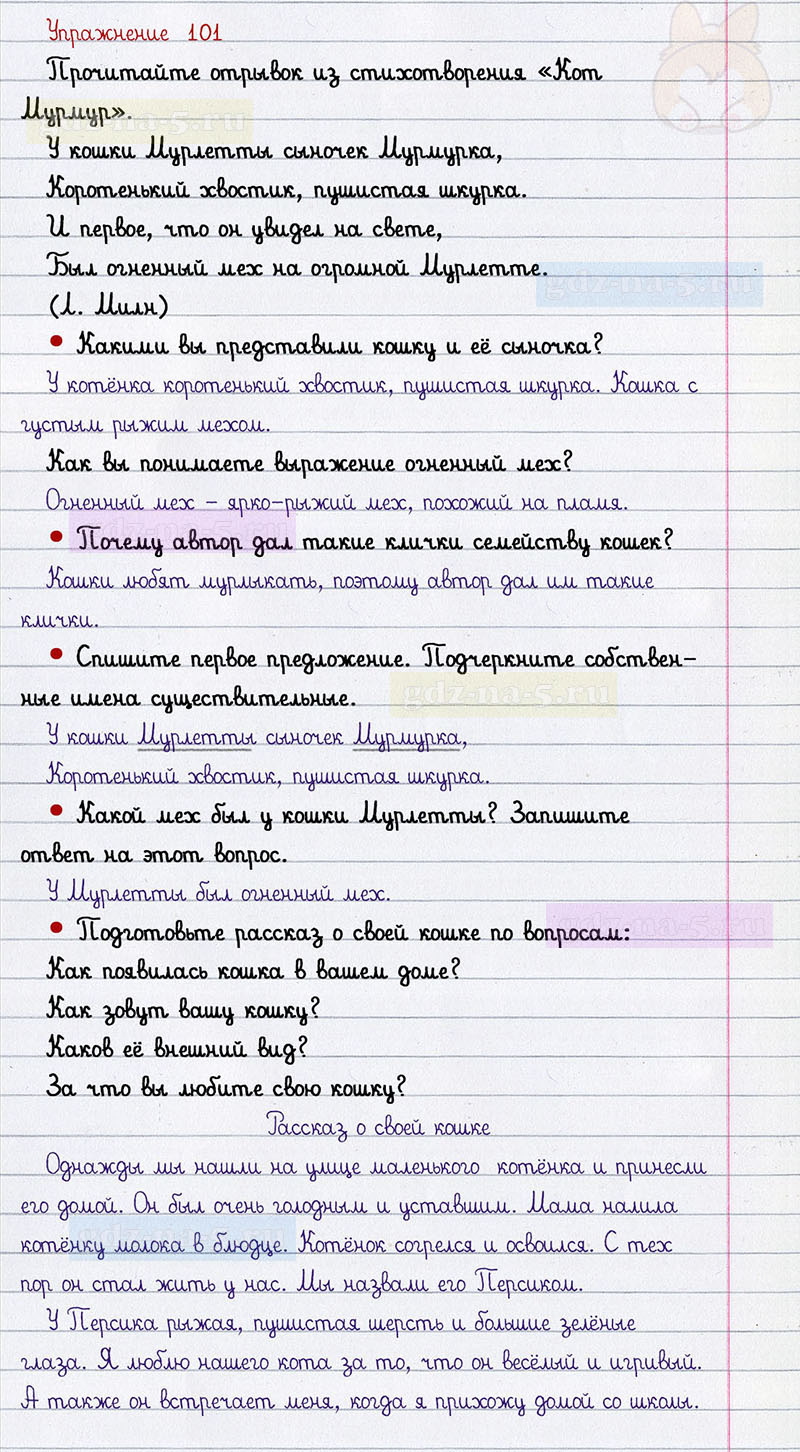 Упражнение 101
Прочитайте отрывок из стихотворения «Кот
Мурмур».
gdz-na-5.ru
У кошки Мурлетты сыночек Мурмурка,
Коротенький хвостик, пушистая шкурка.
И первое, что он увидел на свете,
Был огненный мех на огромной Мурлетте.
gdz-na-5.ru
(Л. Милн)
• Какими вы представили кошку и её сыночка?
У котёнка коротенький хвостик, пушистая шкурка. Кошка с
густым рыжим мехом.
Как вы понимаете выражение огненный мех?
Огненный мех – ярко-рыжий мех, похожий на пламя.
gdz-na-5.ru
• Почему автор дал такие клички семейству кошек?
Кошки любят мурлыкать, поэтому автор дал им такие
клички.
• Спишите первое предложение. Подчеркните собствен-
ные имена существительные.
gdz-na-5.ru
У кошки Мурлетты сыночек Мурмурка,
Коротенький хвостик, пушистая шкурка.
• Какой мех был у кошки Мурлетты? Запишите
ответ на этот вопрос.
У Мурлетты был огненный мех.
• Подготовьте рассказ о своей кошке по вопросам:
gdz-na-5.ru
Как появилась кошка в вашем доме?
Как зовут вашу кошку?
Каков её внешний вид?
За что вы любите свою кошку?
Рассказ о своей кошке
Однажды мы нашли на улице маленького котёнка и принесли
его домой. Он был очень голодным и уставшим. Мама налила
котёнку молока в блюдце. Котёнок согрелся и освоился. С тех
gdz-na-5.ru
пор он стал жить у нас. Мы назвали его Персиком.
У Персика рыжая, пушистая шерсть и большие зелёные
глаза. Я люблю нашего кота за то, что он весёлый и игривый.
А также он встречает меня, когда я прихожу домой со школы.